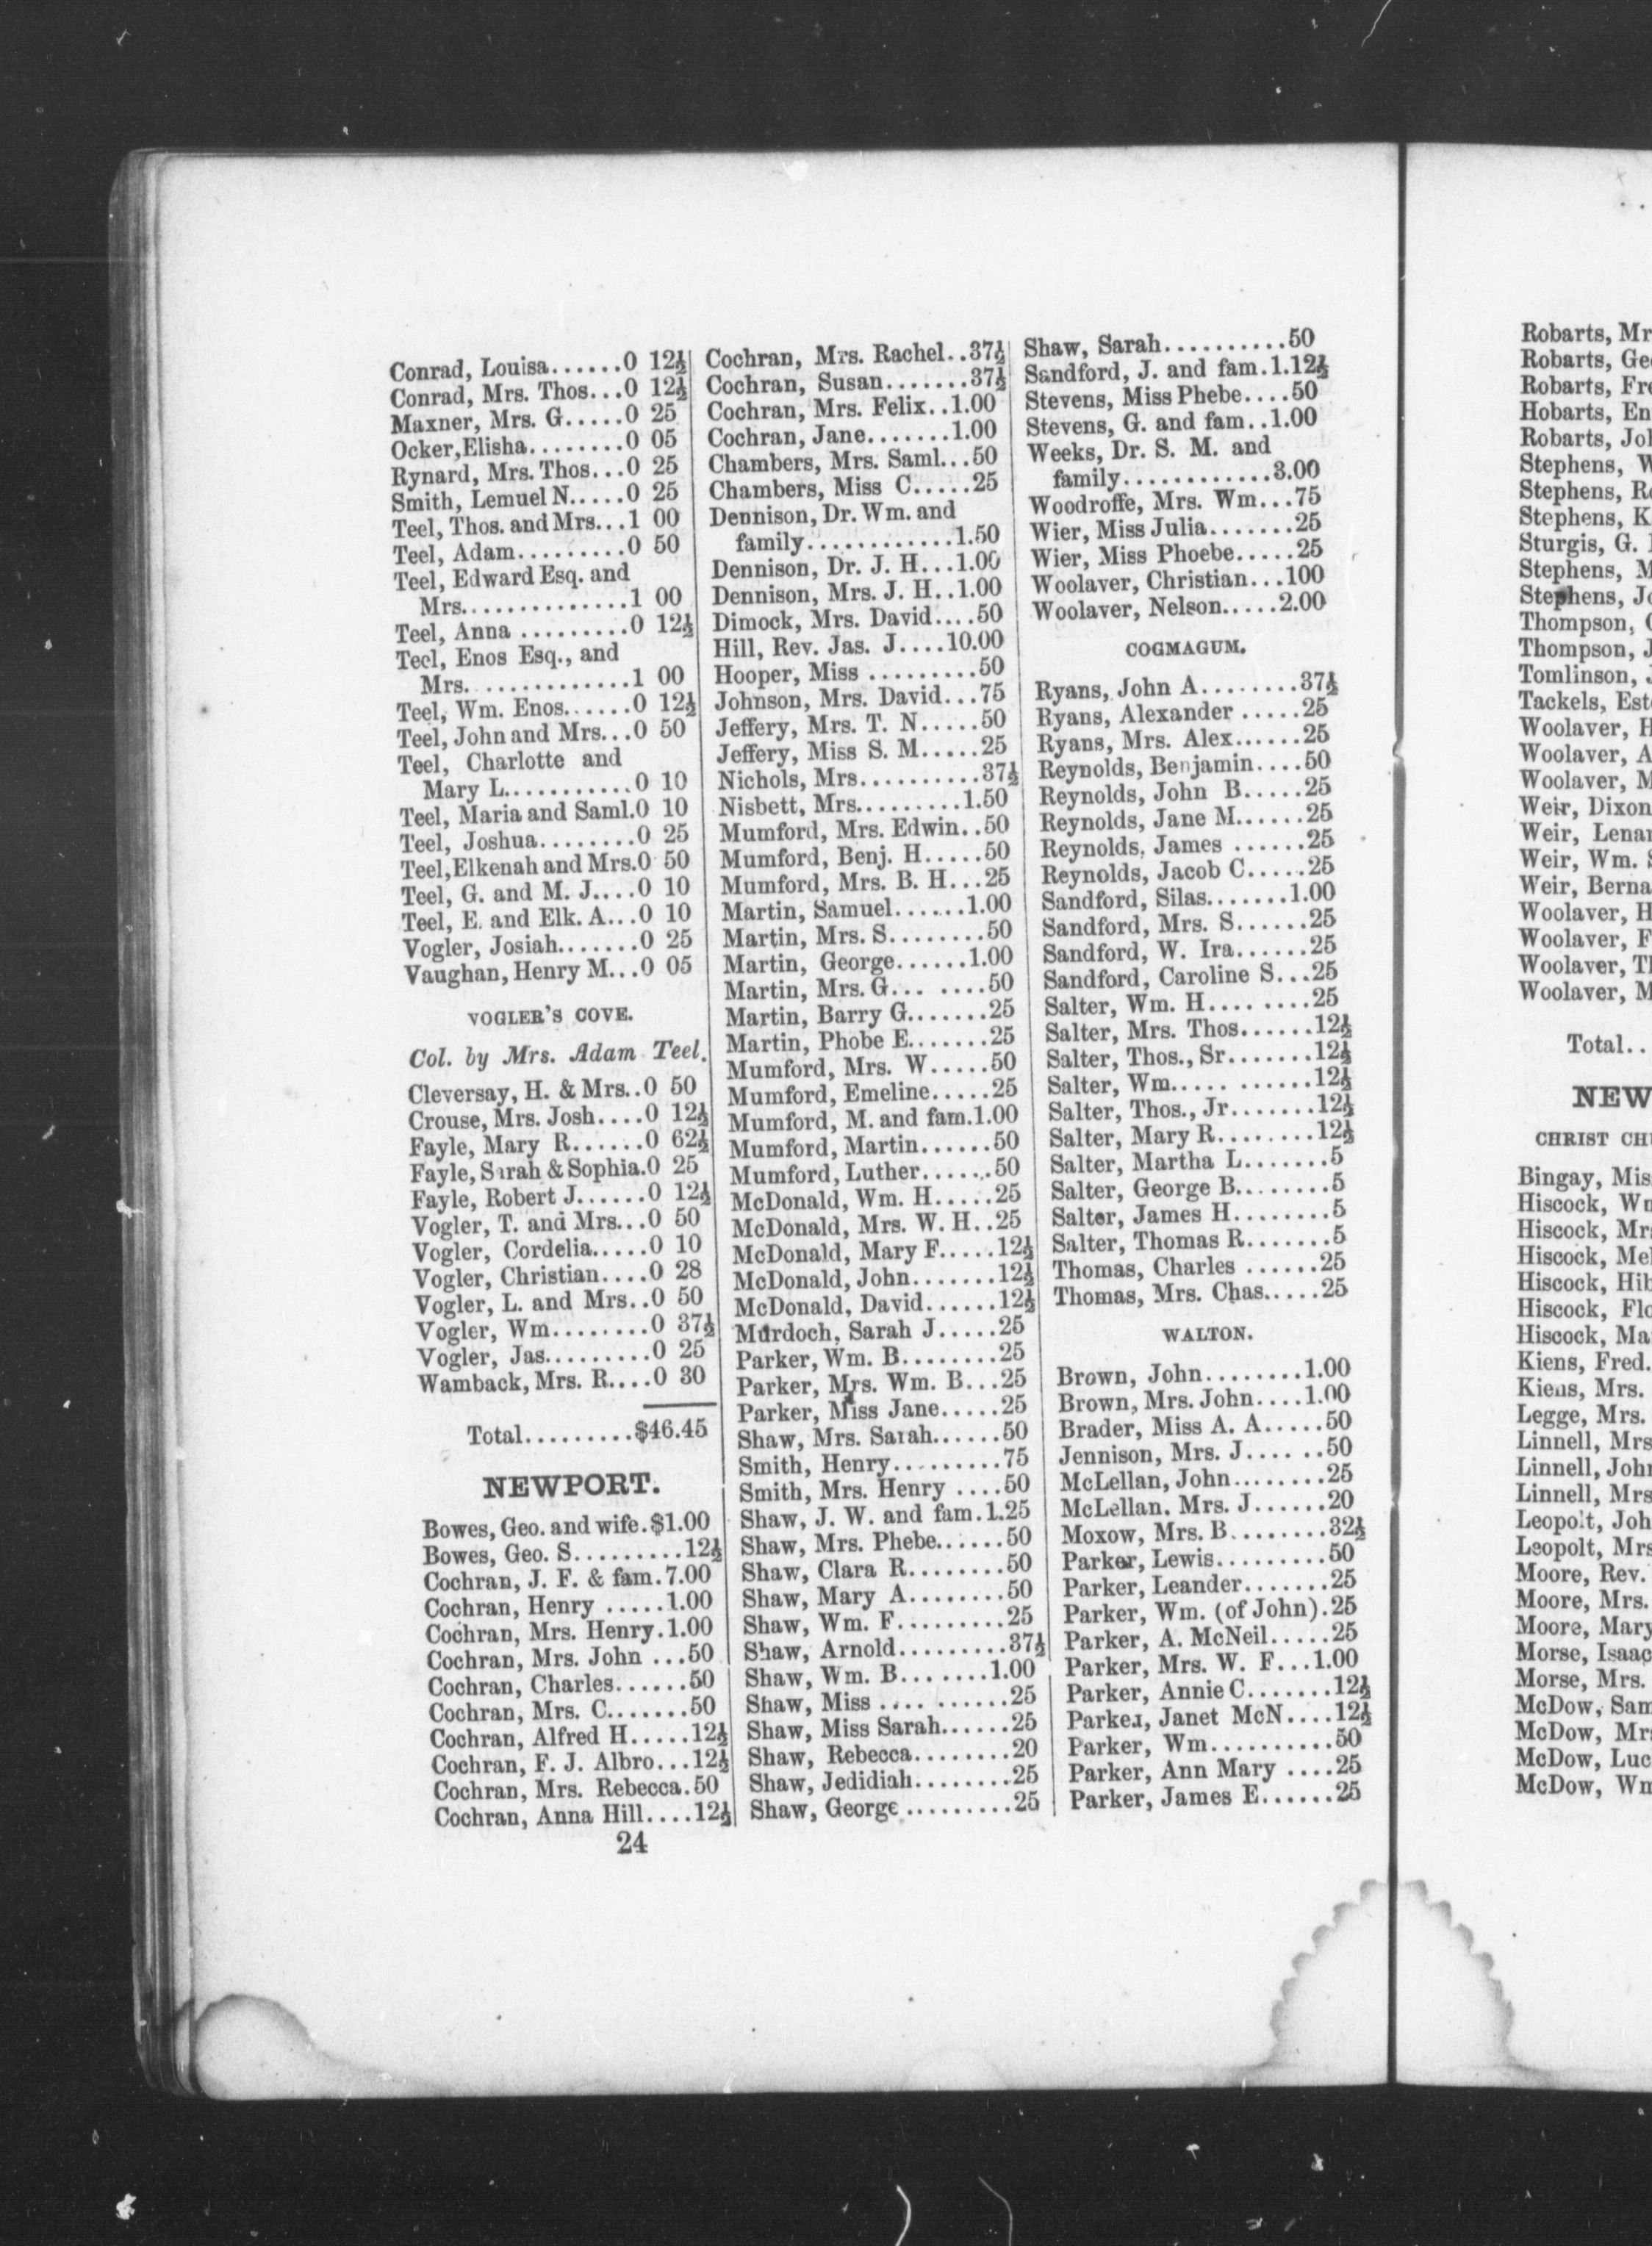 Conrad, Louisa......0 12½
Conrad, Mrs. Thos...0 12½
Maxner, Mrs. G.....0 25
Ocker,Elisha........0 05
Rynard, Mrs. Thos...0 25
Smith, Lemuel N.....0 25
Teel, Thos. and Mrs...1 00
Teel, Adam.........0 50
Teel, Edward Esq. and
Mrs..............1 00
Teel, Anna .........0 12½
Teel, Enos Esq., and
Mrs. .............1 00
Teel, Wm. Enos......0 12½
Teel, John and Mrs...0 50
Teel, Charlotte and
Mary L...........0 10
Teel, Maria and Saml.0 10
Teel, Joshua........0 25
Teel,Elkenah and Mrs.0 50
Teel, G. and M. J....0 10
Teel, E. and Elk. A...0 10
Vogler, Josiah.......0 25
Vaughan, Henry M...0 05
VOGLER'S COVE.
Col. by Mrs. Adam Teel.
Cleversay, H. & Mrs..0 50
Crouse, Mrs. Josh....0 12½
Fayle, Mary R......0 62½
Fayle, Sarah & Sophia.0 25
Fayle, Robert J......0 12½
Vogler, T. and Mrs...0 50
Vogler, Cordelia.....0 10
Vogler, Christian....0 28
Vogler, L. and Mrs..0 50
Vogler, Wm........0 37½
Vogler, Jas.........0 25
Wamback, Mrs. R....0 30
Total.........$46.45
NEWPORT.
Bowes, Geo. and wife.$1.00
Bowes, Geo. S.........12½
Cochran, J. F. & fam.7.00
Cochran, Henry .....1.00
Cochran, Mrs. Henry.1.00
Cochran, Mrs. John ...50
Cochran, Charles......50
Cochran, Mrs. C.......50
Cochran, Alfred H.....12½
Cochran, F. J. Albro...12½
Cochran, Mrs. Rebecca.50
Cochran, Anna Hill....12½
24
Cochran, Mrs. Rachel..37½
Cochran, Susan.......37½
Cochran, Mrs. Felix..1.00
Cochran, Jane.......1.00
Chambers, Mrs. Saml...50
Chambers, Miss C.....25
Dennison, Dr. Wm. and
family.............1.50
Dennison, Dr. J. H...1.00
Dennison, Mrs. J. H..1.00
Dimock, Mrs. David....50
Hill, Rev. Jas. J....10.00
Hooper, Miss .........50
Johnson, Mrs. David...75
Jeffery, Mrs. T. N.....50
Jeffery, Miss S. M.....25
Nichols, Mrs..........37½
Nisbett, Mrs.........1.50
Mumford, Mrs. Edwin..50
Mumford, Benj. H.....50
Mumford, Mrs. B. H...25
Martin, Samuel......1.00
Martin, Mrs. S........50
Martin, George......1.00
Martin, Mrs. G... ....50
Martin, Barry G.......25
Martin, Phobe E.......25
Mumford, Mrs. W.....50
Mumford, Emeline.....25
Mumford, M. and fam.1.00
Mumford, Martin......50
Mumford, Luther......50
McDonald, Wm. H.....25
McDonald, Mrs. W. H..25
McDonald, Mary F.....12½
McDonald, John.......12½
McDonald, David......12½
Murdoch, Sarah J.....25
Parker, Wm. B........25
Parker, Mrs. Wm. B...25
Parker, Miss Jane.....25
Shaw, Mrs. Sarah......50
Smith, Henry.........75
Smith, Mrs. Henry ....50
Shaw, J. W. and fam.1.25
Shaw, Mrs. Phebe......50
Shaw, Clara R........50
Shaw, Mary A........50
Shaw, Wm. F.........25
Shaw, Arnold.........37½
Shaw, Wm. B.......1.00
Shaw, Miss .... ......25
Shaw, Miss Sarah......25
Shaw, Rebecca........20
Shaw, Jedidiah........25
Shaw, George .........25
Shaw, Sarah..........50
Sandford, J. and fam.1.12½
Stevens, Miss Phebe....50
Stevens, G. and fam..1.00
Weeks, Dr. S. M. and
family............3.00
Woodroffe, Mrs. Wm...75
Wier, Miss Julia.......25
Wier, Miss Phoebe.....25
Woolaver, Christian...100
Woolaver, Nelson.....2.00
COGMAGUM.
Ryans, John A........37½
Ryans, Alexander .....25
Ryans, Mrs. Alex......25
Reynolds, Benjamin....50
Reynolds, John B.....25
Reynolds, Jane M......25
Reynolds, James ......25
Reynolds, Jacob C.....25
Sandford, Silas.......1.00
Sandford, Mrs. S......25
Sandford, W. Ira......25
Sandford, Caroline S...25
Salter, Wm. H.... ....25
Salter, Mrs. Thos......12½
Salter, Thos., Sr.......12½
Salter, Wm..... ......12½
Salter, Thos., Jr.......12½
Salter, Mary R........12½
Salter, Martha L.......5
Salter, George B........5
Salter, James H........5
Salter, Thomas R.......5
Thomas, Charles ......25
Thomas, Mrs. Chas.....25
WALTON.
Brown, John........1.00
Brown, Mrs. John....1.00
Brader, Miss A. A.....50
Jennison, Mrs. J......50
McLellan, John........25
McLellan. Mrs. J......20
Moxow, Mrs. B........32½
Parker, Lewis.........50
Parker, Leander.......25
Parker, Wm. (of John).25
Parker, A. McNeil.....25
Parker, Mrs. W. F...1.00
Parker, Annie C.......12½
Parker, Janet McN....12½
Parker, Wm..........50
Parker, Ann Mary ....25
Parker, James E......25
Robarts, Mr
Robarts, Ge
Robarts, Fre
Hobarts, En
Robarts, Jo
Stephens, W
Stephens, R
Stephens, K
Sturgis, G.
Stephens, M
Stephens, Jo
Thompson,
Thompson, J
Tomlinson,
Tackels, Est
Woolaver, H
Woolaver, A
Woolaver, M
Weir, Dixon
Weir, Lenar
Weir, Wm. S
Weir, Berna
Woolaver, H
Woolaver, F
Woolaver, T
Woolaver, M
Total..
NEW
CHRIST CH
Bingay, Mis
Hiscock, Wm
Hiscock, Mr
Hiscock, Me
Hiscock, Hib
Hiscock, Flo
Hiscock, Ma
Kiens, Fred.
Kiens, Mrs.
Legge, Mrs.
Linnell, Mrs
Linnell, John
Linnell, Mrs
Leopolt, Joh
Leopolt, Mrs
Moore, Rev.
Moore, Mrs.
Moore, Mary
Morse, Isaac
Morse, Mrs.
McDow, Sam
McDow, Mr
McDow, Luc
McDow, Wm